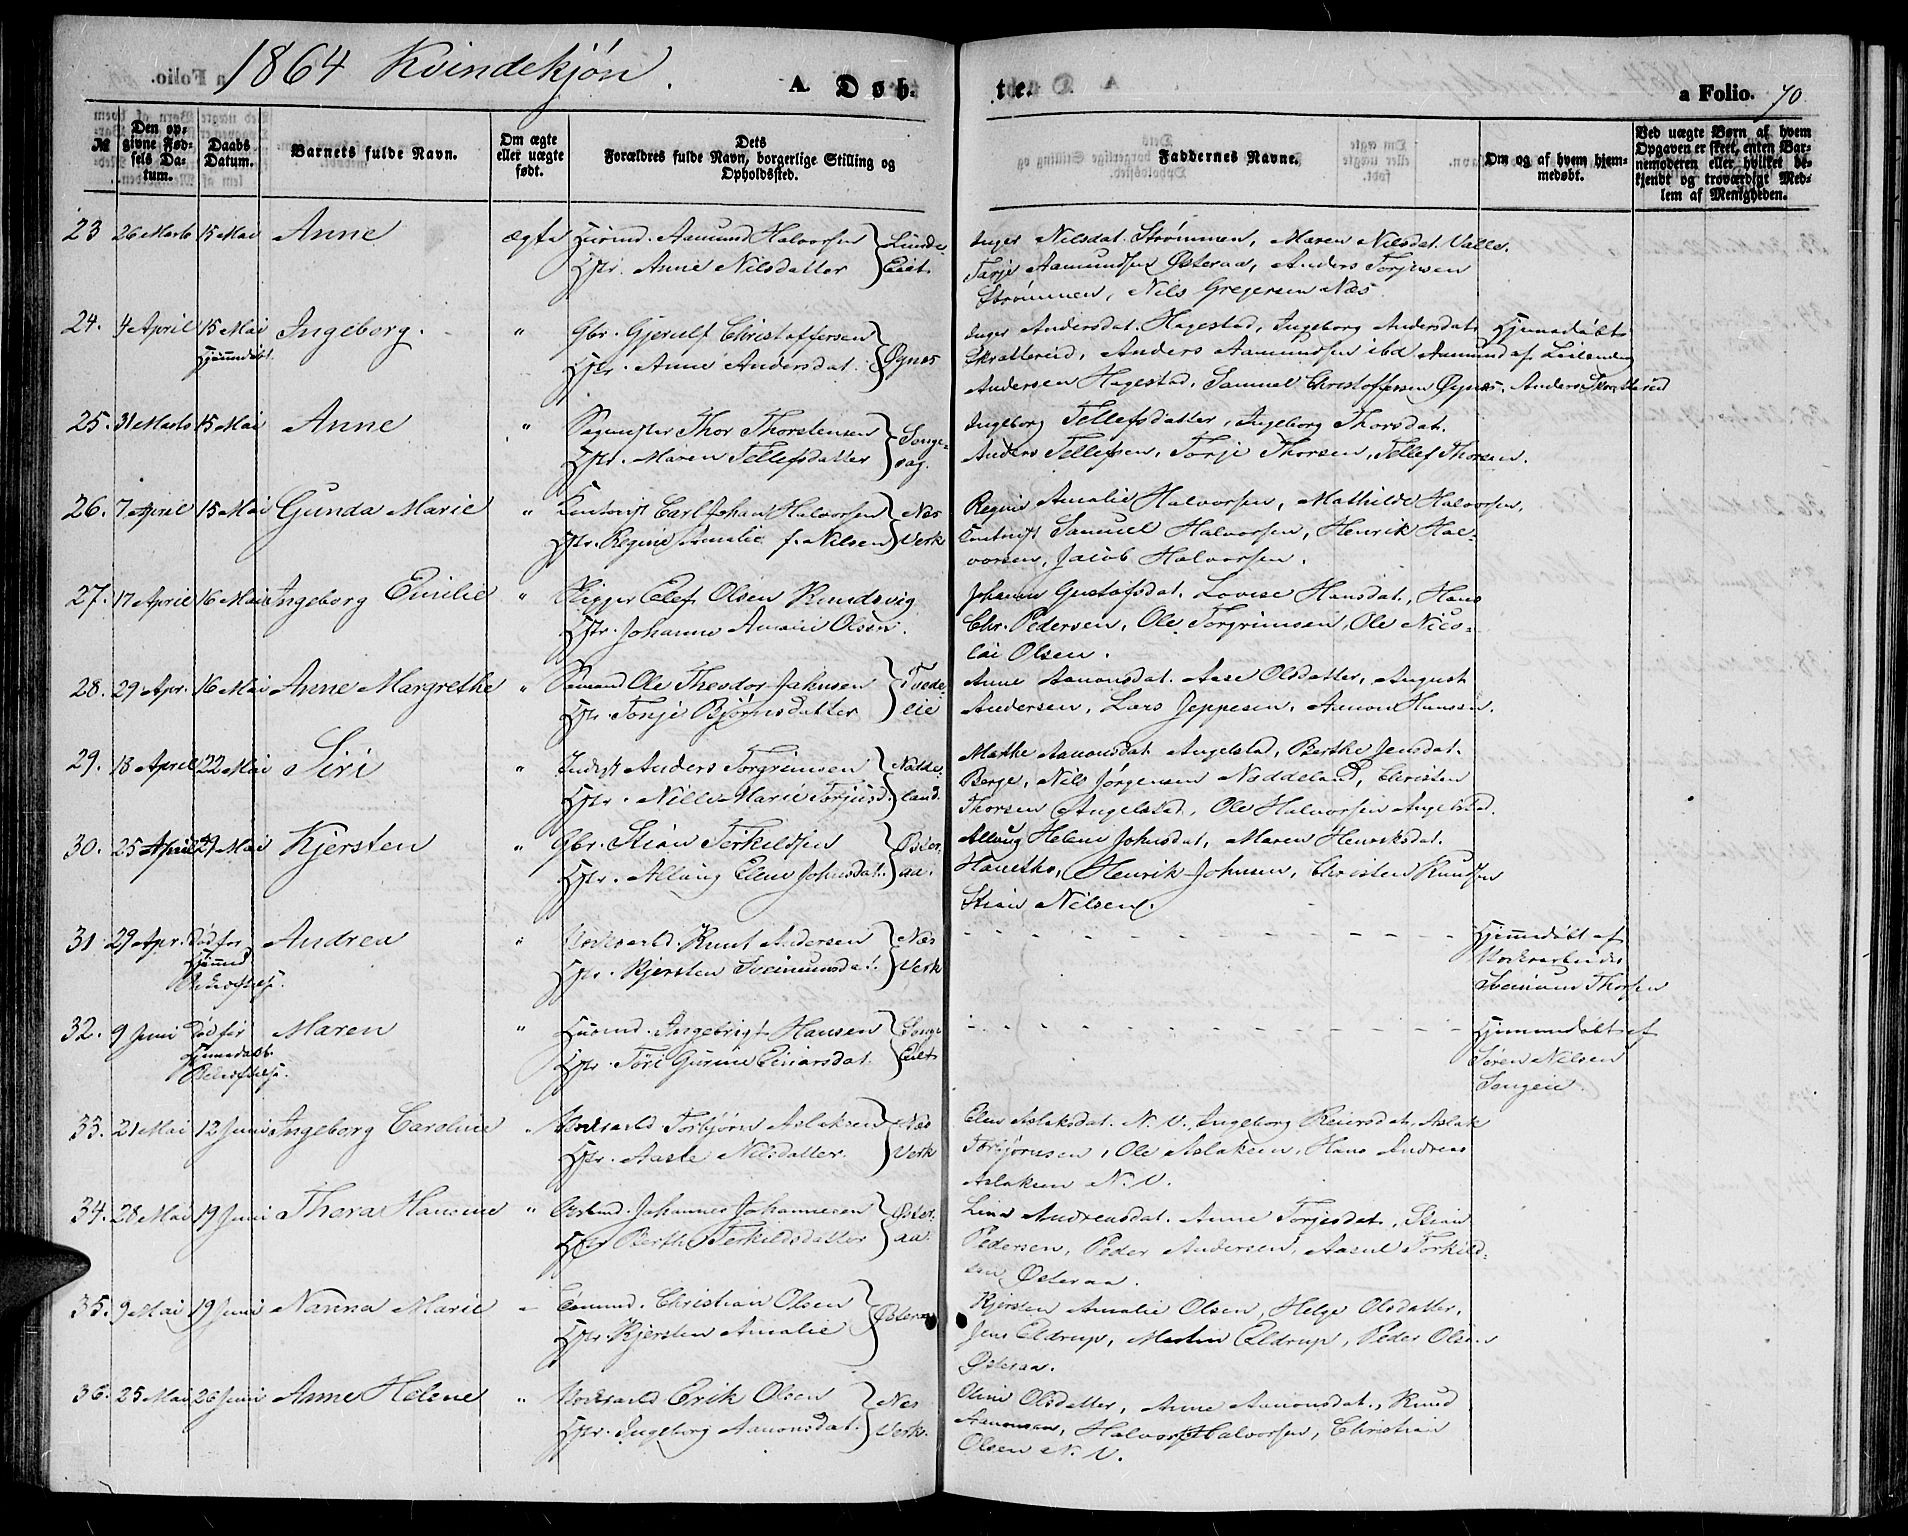 1864 Kvindekjøn.
A. Døb-
te.
a Folio. 70
№
Den opgivne Fødsels Datum.
Daabs Datum.
Barnets fulde Navn.
Om ægte eller uægte født.
Dets Forældres fulde Navn, borgerlige Stilling og Opholdssted.
Faddernes Navne.
Om og af hvem hjemmedøbt.
Ved uægte Børn af hvem Opgaven er skeet, enten Barnemoderen eller hvilket bekjendt og troværdigt Medlem af Menigheden.
23 26 Marts 15 Mai Anne ægte Huusmd. Aamund Halvorsen Lunde-
Hstr. Anne Nilsdatter Eiet.
Inger Nilsdat. Strømmen, Maren Nilsdat. Valle.
Tarje Aamundsen Østeraa, Anders Torjusen
Strømmen, Nils Gregersen Næs.
24. 4 April 15 Mai Ingeborg. " Gbr. Gjerulf Christoffersen
Hjemmedøbt. Hstr. Anne Andersdat. Øynæs
Inger Andersdat. Hagestad, Ingeborg Andersdat. Hjemmedøbt
Skrattereid, Anders Aamundsen ibd Aamund af
Andersen Hagestad, Samuel Christoffersen Øynæs, Anders Skrattereid
25. 31 Marts 15 Mai Anne " Sagmester Thor Thorstensen Songe-
Hstr. Maren Tellefsdatter sag.
Ingeborg Tellefsdatter, Ingeborg Thorsdat.
Anders Tellefsen, Torje Thorsen, Tellef Thorsen.
26. 7 April 15 Mai Gunda Marie " Contorist Carl Johan Halvorsen Næs
Hstr. Regine Amalie f. Nilsen Verk
Regine Amalie Halvorsen, Mathilde Halvorsen,
Contorist Samuel Halvorsen, Henrik Hal-
vorsen, Jacob Halvorsen.
27. 17 April 16 Mai Ingeborg Emilie " Skipper Elef Olsen Knudsvig
Hstr. Johanne Amalie Olsen.
Johanne Gustafsdat. Lovise Hansdat., Hans
Chr. Pedersen, Ole Torgrimsen, Ole Nico-
lai Olsen.
28. 29 Apr. 16 Mai Anne Margrethe " Sømand Ole Theodor Jahnsen Tvede-
Hstr. Tonje Bjørnsdatter eie
Anne Aanonsdat. Aase Olsdatter, August
Andersen, Lars Jeppesen, Aanon Hansen.
29. 18 April 22 Mai Siri " Inderst Anders Torgrimsen Nadde-
Hstr. Nille Marie Torjusd. land.
Marthe Aanonsdat. Angelstad, Berthe Jensdat.
Berge, Nils Jørgensen Naddeland, Christen
Thorsen Angelstad, Ole Halvorsen Angelstad.
30. 25 April 29 Mai Kjersten " Gbr. Stian Terkildsen Øster-
Hstr. Allaug Elene Johnsdat. aa.
Allaug Helene Johnsdat, Maren Henriksdat.
Hanetho, Henrik Johnsen, Christen Knudsen
Stian Nilsen.
31. 29 Apr. Død før Andrea " Verksarbd. Knut Andersen Næs
Hjemmed. Hstr. Kjersten Sveinunsdat. Verk
Bekræftelse.
Hjemmedøbt af
Verksarbeider
Sveinun Thorsen
32. 9 Juni Død før Maren " Huusmd. Ingebrigt Hansen Songe-
Hjemmedaabs Hstr. Tore Gurine Einarsdat. Eiet
Bekræftelse.
Hjemmedøbt af
Søren Nilsen
Songeie.
33. 21 Mai 12 Juni Ingeborg Caroline " Verksarbd Torbjørn Aslaksen Næs
Hstr. Aaste Nilsdatter. Verk
Elen Aslaksdat. N. V., Ingeborg Reiersdat, Aslak
Torbjørnsen, Ole Aslaksen, Hans Andreas
Aslaksen N. V.
34. 28 Mai 19 Juni Thora Hansine " Johannes Johannesen Øster-
Hstr Berthe Terkildsdatter aa.
Lina Andreasdat. Anne Torjesdat., Stian
Pedersen, Peder Andersen, Aasul Torkild-
sen Østeraa.
35. 9 Mai 19 Juni Nanna Marie " Sømand. Christian Olsen
Hstr. Kjersten Amalie Østeraa
Kjersten Amalie Olsen, Helge Olsdatter,
Jens Eldrup, Martin Eldrup, Peder Olsen
Østeraa.
36. 25 Mai 26 Juni Anne Helene " Verksarbd Erik Olsen Næs
Hstr. Ingeborg Aanonsdat. Verk.
Oline Olsdatter, Anne Aanonsdat., Knud
Aanonsen, Halvor Halvorsen, Christian
Olsen N. V.